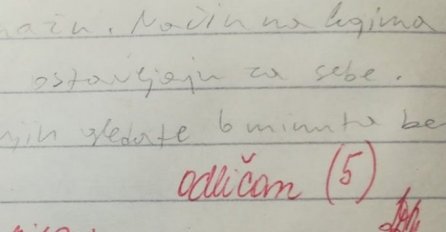 način. Način na kojima
ostavljaju za sebe.
gledate 6 minuta be
odličan (5)